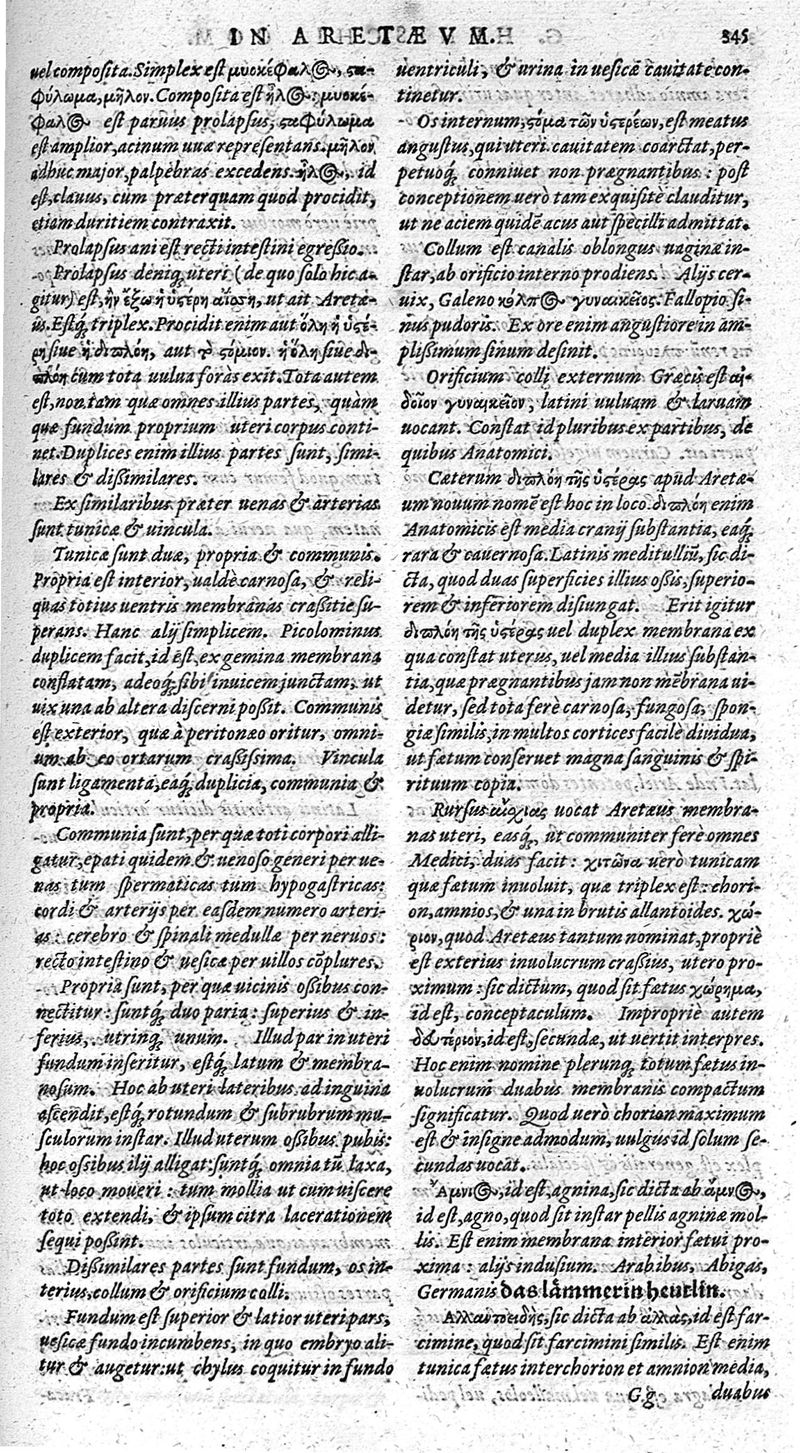 IN ARETÆVM. 345
uel composita. Simplex est μυοκέφαλ⊙, στα-
φύλωμα, μῆλον. Composita est ἧλ⊙: μυοκέ-
φαλ⊙ est paruus prolapsus, σταφύλωμα
est amplior, acinum uuæ repræsentans. μῆλον
adhuc major, palpebras excedens. ἧλ⊙, id
est, clauus, cum præterquam quod procidit,
etiam duritiem contraxit.
Prolapsus ani est recti intestini egressio.
Prolapsus deniq; uteri (de quo solo hic a-
gitur) est, ἢν ἔξω ἡ ὑστέρη ἀΐσση, ut ait Aretæ-
us. Estq; triplex. Procidit enim aut ὅλη ἡ ὑστέ-
ρη siue ἡ διπλόη, aut τὸ στόμιον. ἡ ὅλη siue δι-
πλόη cum tota uulua foràs exit. Tota autem
est, non tam quæ omnes illius partes, quàm
quæ fundum proprium uteri corpus conti-
net. Duplices enim illius partes sunt, simi-
lares & dissimilares.
Ex similaribus præter uenas & arterias
sunt tunicæ & uincula.
Tunicæ sunt duæ, propria & communis.
Propria est interior, ualdè carnosa, & reli-
quas totius uentris membranas crassitie su-
perans. Hanc alij simplicem. Picolominus
duplicem facit, id est, ex gemina membrana
conflatam, adeoq; sibi inuicem junctam, ut
uix una ab altera discerni possit. Communis
est exterior, quæ à peritonæo oritur, omni-
um ab eo ortarum crassissima. Vincula
sunt ligamenta, eaq; duplicia, communia &
propria.
Communia sunt, per quæ toti corpori alli-
gatur, epati quidem & uenoso generi per ue-
nas tum spermaticas tum hypogastricas:
cordi & arterijs per easdem numero arteri-
as: cerebro & spinali medullæ per neruos:
recto intestino & uesicæ per uillos cõplures.
Propria sunt, per quæ uicinis ossibus con-
nectitur: suntq; duo paria: superius & in-
ferius, utrinq; unum. Illud par in uteri
fundum inseritur, estq; latum & membra-
nosum. Hoc ab uteri lateribus ad inguina
ascendit, estq; rotundum & subrubrum mu-
sculorum instar. Illud uterum ossibus pubis:
hoc ossibus ilij alligat: suntq; omnia tũ laxa,
ut loco moueri: tum mollia ut cum uiscere
toto extendi, & ipsum citra lacerationem
sequi possint.
Dissimilares partes sunt fundum, os in-
terius, collum & orificium colli.
Fundum est superior & latior uteri pars,
uesicæ fundo incumbens, in quo embryo ali-
tur & augetur: ut chylus coquitur in fundo
uentriculi, & urina in uesicæ cauitate con-
tinetur.
Os internum, στόμα τῶν ὑστερέων, est meatus
angustus, qui uteri cauitatem coarctat, per-
petuoq; conniuet non prægnantibus: post
conceptionem uerò tam exquisitè clauditur,
ut ne aciem quidẽ acus aut specilli admittat.
Collum est canalis oblongus uaginæ in-
star, ab orificio interno prodiens. Alijs cer-
uix, Galeno κόλπ⊙ γυναικεῖος. Fallopio si-
nus pudoris. Ex ore enim angustiore in am-
plissimum sinum desinit.
Orificium colli externum Græcis est αἰ-
δοῖον γυναικεῖον, latini uuluam & laruam
uocant. Constat id pluribus ex partibus, de
quibus Anatomici.
Cæterum διπλόη τῆς ὑστέρας apud Aretæ-
um nouum nomẽ est hoc in loco. διπλόη enim
Anatomicis est media cranij substantia, eaq;
rara & cauernosa. Latinis meditulliũ, sic di-
cta, quod duas superficies illius ossis, superio-
rem & inferiorem disiungat. Erit igitur
διπλόη τῆς ὑστέρας uel duplex membrana ex
qua constat uterus, uel media illius substan-
tia, quæ prægnantibus jam non mẽbrana ui-
detur, sed tota ferè carnosa, fungosa, spon-
giæ similis, in multos cortices facilè diuidua,
ut fætum conseruet magna sanguinis & spi-
rituum copia.
Rursus αὔχιας uocat Aretæus membra-
nas uteri, easq;, ut communiter ferè omnes
Medici, duas facit: χιτῶνα uerò tunicam
quæ fætum inuoluit, quæ triplex est: chori-
on, amnios, & una in brutis allantoides. χώ-
ριον, quod Aretæus tantum nominat, propriè
est exterius inuolucrum crassius, utero pro-
ximum: sic dictum, quod sit fætus χώρημα,
id est, conceptaculum. Impropriè autem
δευτέριον, id est, secundæ, ut uertit interpres.
Hoc enim nomine plerunq; totum fætus in-
uolucrum duabus membranis compactum
significatur. Quod uerò chorion maximum
est & insigne admodum, uulgus id solum se-
cundas uocat.
Ἄμνι⊙, id est, agnina, sic dicta ab ἄμν⊙,
id est, agno, quod sit instar pellis agninæ mol-
lis. Est enim membrana interior fætui pro-
xima: alijs indusium. Arabibus, Abigas,
Germanis das lämmerin heutlin.
Ἀλλαντοειδὴς, sic dicta ab ἀλλὰς, id est far-
cimine, quod sit farcimini similis. Est enim
tunica fætus inter chorion et amnion media,
G g duabus